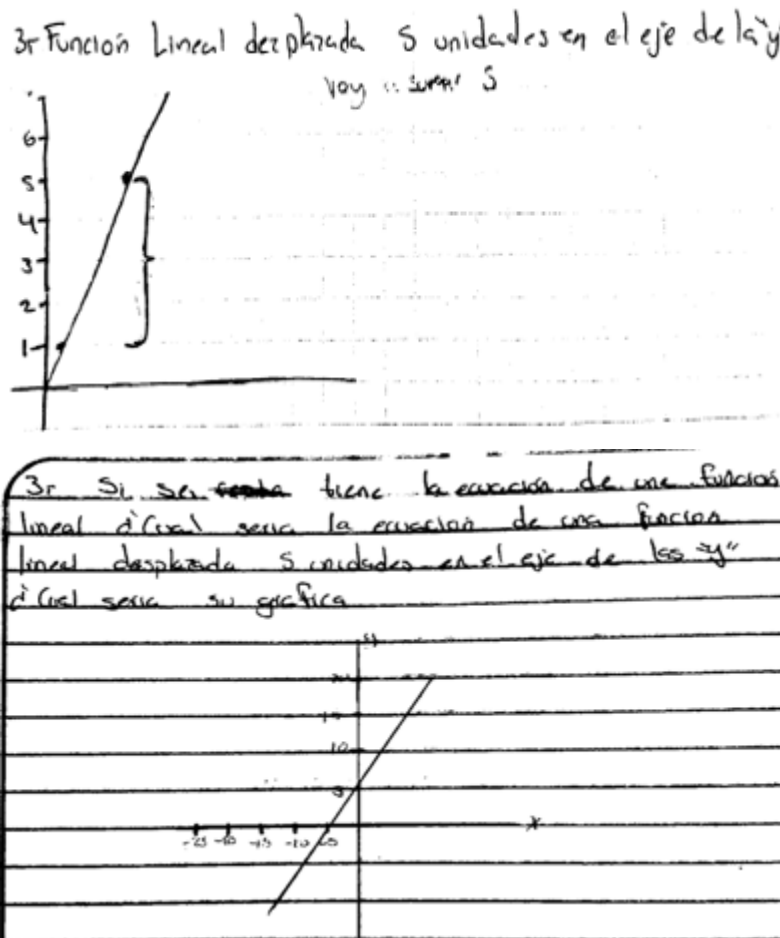 3r Función Lineal dezplazada 5 unidades en el eje de la "y
voy a sumar 5
6
5
4
3
2
1
3r Si se tiene la ecuación de una función
lineal ¿Cual seria la ecuacion de una funcion
lineal desplazada 5 unidades en el eje de las "y"
¿Cual seria su grafica
y
20
15
10
5
x
-25 -20 -15 -10 -5